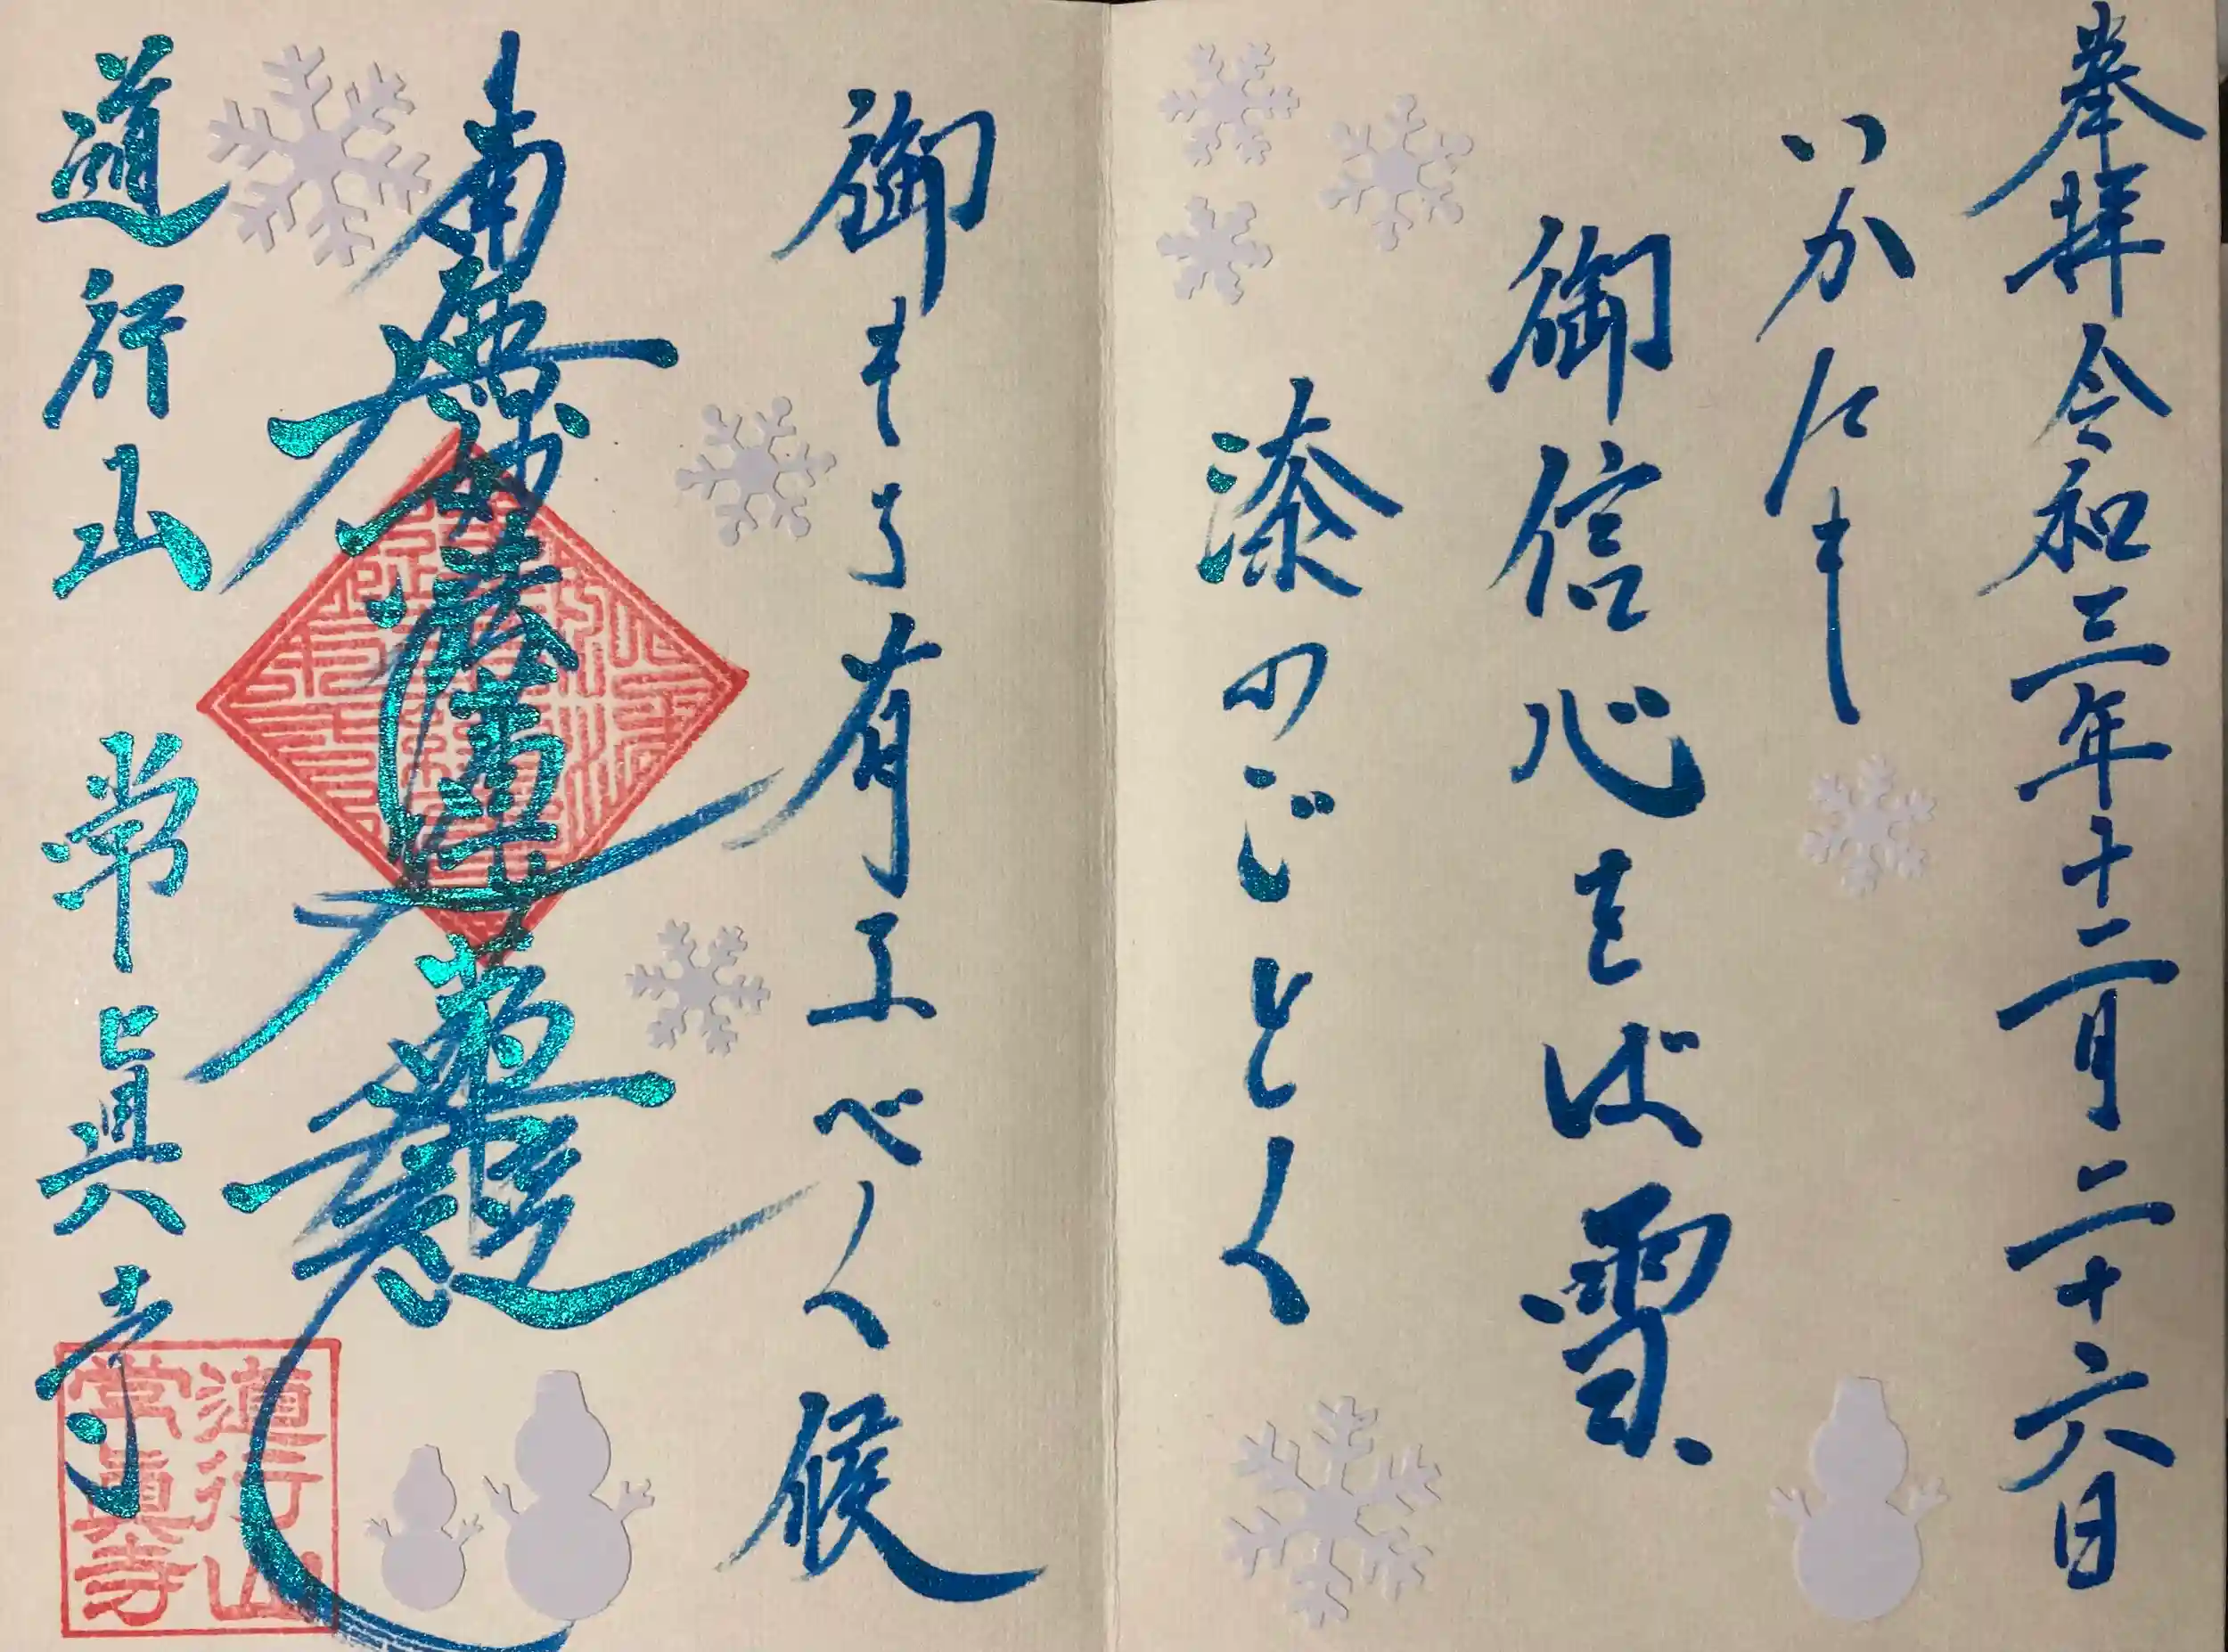 奉拝 令和三年十二月二十六日
いかにも
御信心をば雪、
漆のごとく
御もち有るべく候
南無妙法蓮華経
道行山 常眞寺
道行山
常眞寺